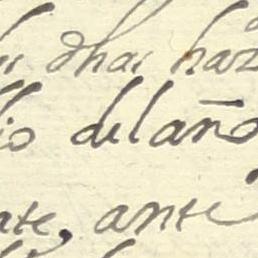 dhas haz
io delaño
ate, ante